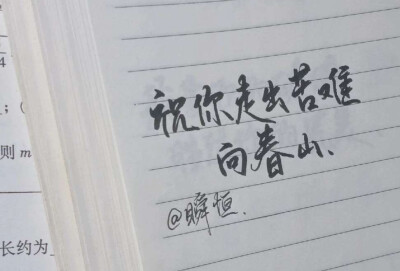 祝你走出苦难
向春山、
@瞬恒.
4
；（
则 m
长约为